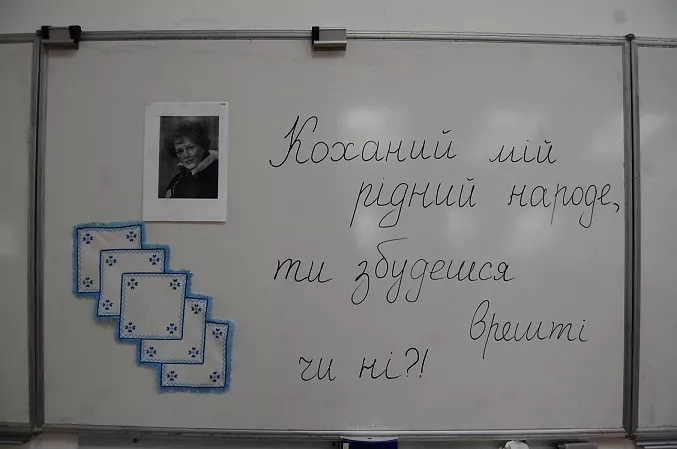 Коханий мій
рідний народе,
ти збудешся
врешті
чи ні?!